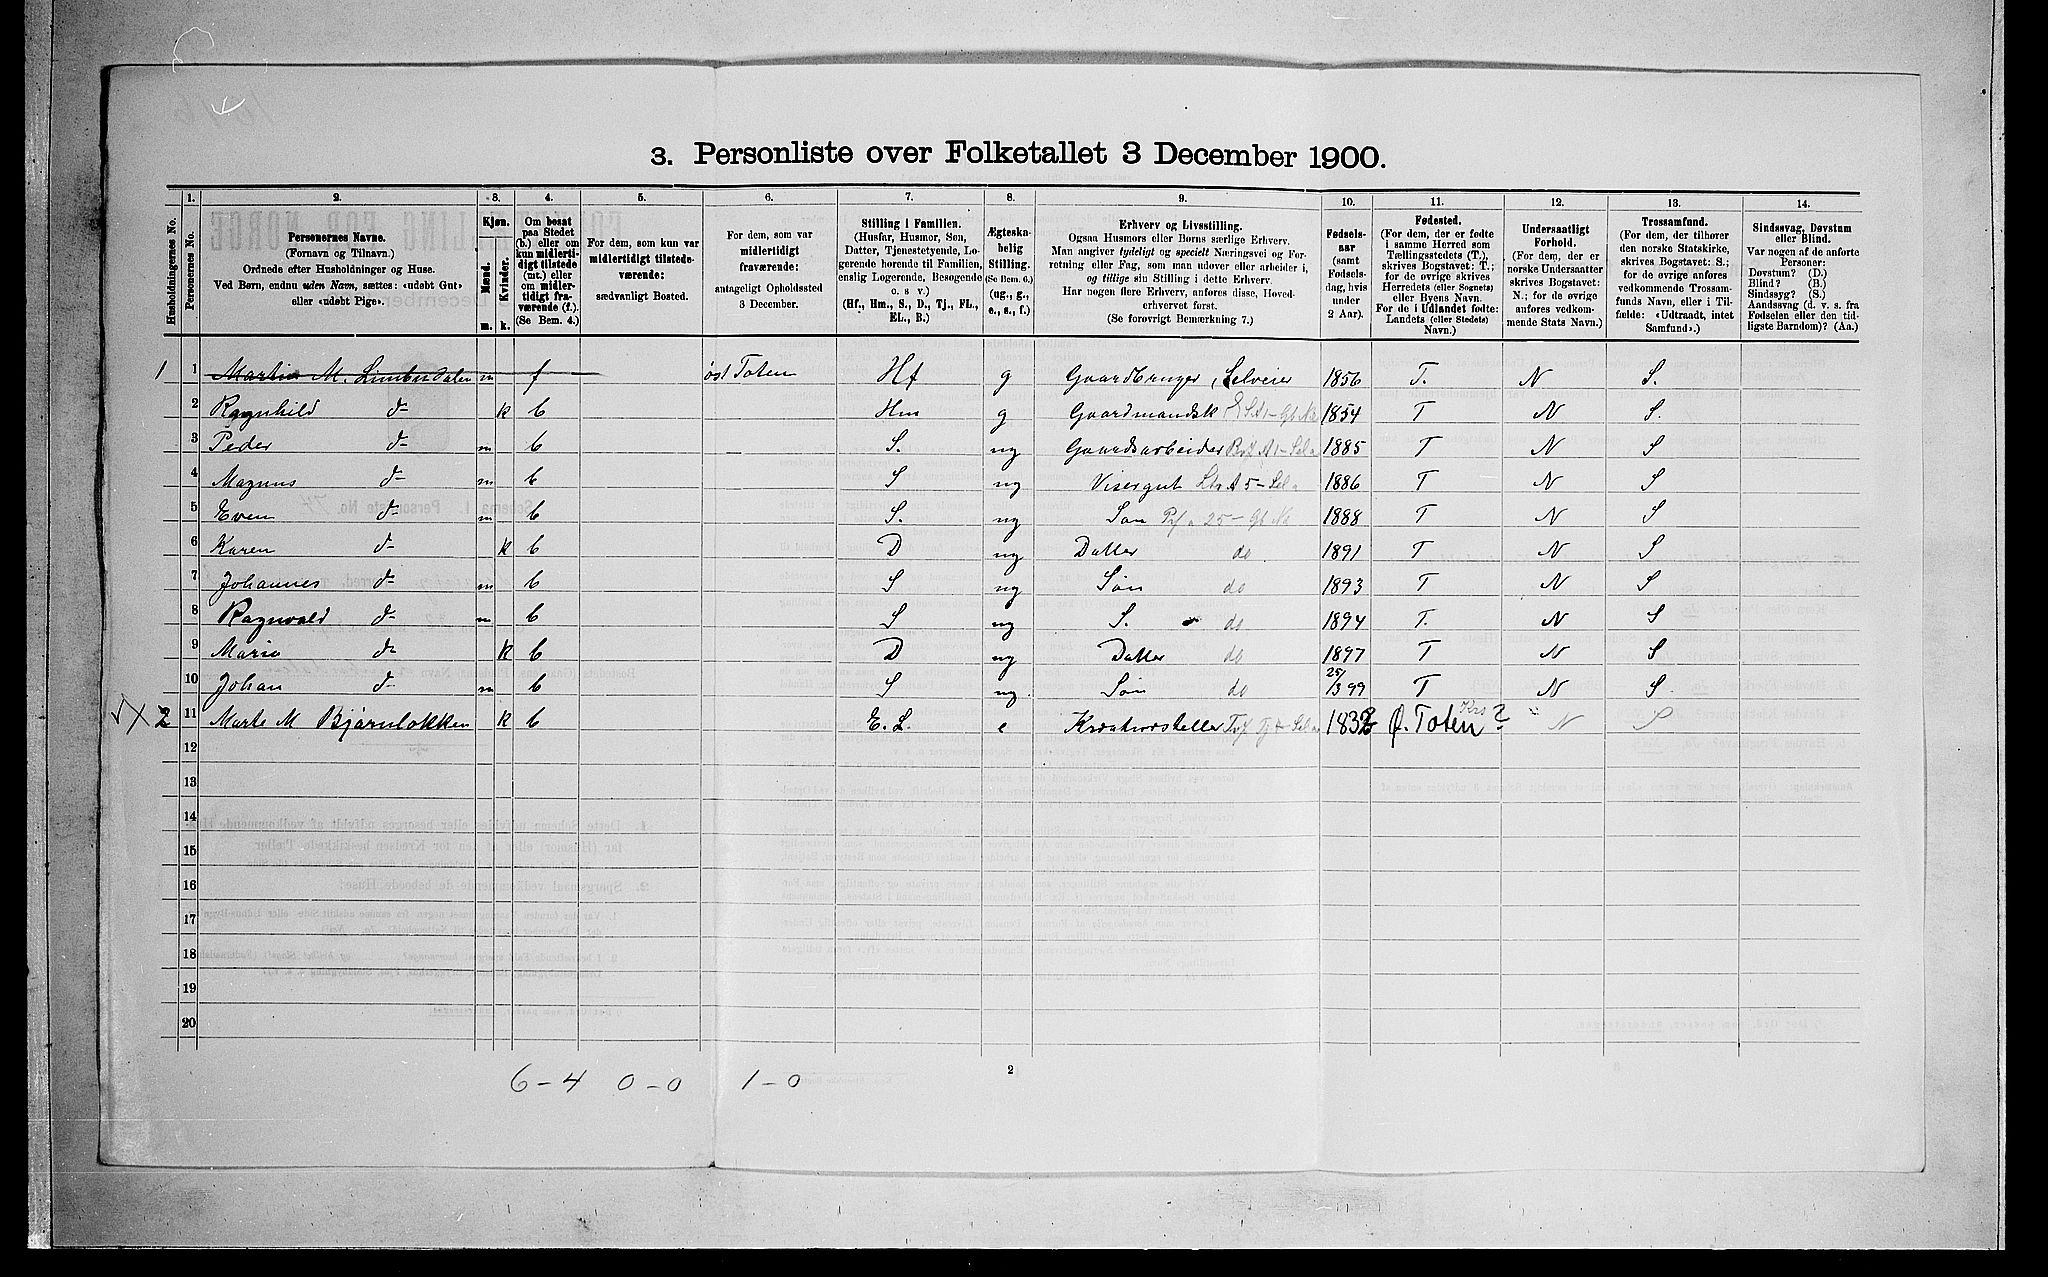 3. Personliste over Folketallet 3 December 1900.
1. 2. 3. 4. 5. 6. 7. 8. 9. 10. 11. 12. 13. 14.
Husholdningernes No.
Personernes No.
Personernes Navne.
(Fornavn og Tilnavn.)
Ordnede efter Husholdninger og Huse.
Ved Børn, endnu uden Navn, sættes: «udøbt Gut»
eller «udøbt Pige».
Kjøn.
Mænd. m.
Kvinder. k.
Om bosat
paa Stedet
(b.) eller om
kun midlerti-
digt tilstede
(mt.) eller
om midler-
tidigt fra-
værende (f.).
(Se Bem. 4.)
For dem, som kun var
midlertidigt tilstede-
værende:
sædvanligt Bosted.
For dem, som var
midlertidigt
fraværende:
antageligt Opholdssted
3 December.
Stilling i Familien.
(Husfar, Husmor, Søn,
Datter, Tjenestetyende, Lo-
gerende hørende til Familien,
enslig Logerende, Besøgende
o. s v.)
(Hf., Hm., S., D., Tj., FL.,
EL., B.)
Ægteska-
belig
Stilling.
(Se Bem. 6.)
(ug., g.,
e., s., f.)
Erhverv og Livsstilling.
Ogsaa Husmors eller Børns særlige Erhverv.
Man angiver tydeligt og specielt Næringsvei og For-
retning eller Fag, som man udøver eller arbeider i,
og tillige sin Stilling i dette Erhverv.
Har nogen flere Erhverv, anføres disse, Hoved-
erhvervet først.
(Se forøvrigt Bemærkning 7.)
Fødsels-
aar
(samt
Fødsels-
dag, hvis
under
2 Aar).
Fødested.
(For dem, der er fødte
i samme Herred som
Tællingsstedets (T.),
skrives Bogstavet: T.;
for de øvrige skrives
Herredets (eller Sognets)
eller Byens Navn.
For de i Udlandet fødte:
Landets (eller Stedets)
Navn.)
Undersaatligt
Forhold.
(For dem, der er
norske Undersaatter
skrives Bogstavet:
N.; for de øvrige
anføres vedkom-
mende Stats Navn.)
Trossamfund.
(For dem, der tilhører
den norske Statskirke,
skrives Bogstavet: S.;
for de øvrige anføres
vedkommende Trossam-
funds Navn, eller i Til-
fælde: «Udtraadt, intet
Samfund».)
Sindssvag, Døvstum
eller Blind.
Var nogen af de anførte
Personer:
Døvstum? (D.)
Blind? (B.)
Sindssyg? (S.)
Aandssvag (d. v. s. fra
Fødselen eller den tid-
ligste Barndom)? (Aa.)
1 1 M. m f øst Toten Hf g Gaardbruger, Selveier 1856 T. N S.
2 Ragnhild d- k b Hm g Gaardmandsk 1854 T N S.
3 Peder d- m b S. ug Gaardsarbeider 1885 T N S
4 Magnus d- m b S ug Visergut 1886 T N S
5 Even d- m b S. ug Søn 1888 T N S
6 Karen d- k b D ug Datter do 1891 T N S
7 Johannes d- m b S ug Søn do 1893 T N S
8 Ragnvald d- m b S ug S. do 1894 T. N S
9 Marie d- k b D ug Datter do 1897 T N S
10 Johan d- m b S ug. Søn do 25/3 99 T N S.
2 11 Marte M Bjørnløkken k b E. L. e 1832 Ø. Toten ? N S
12
13
14
15
16
17
18
19
20
6-4 0-0 1-0
2